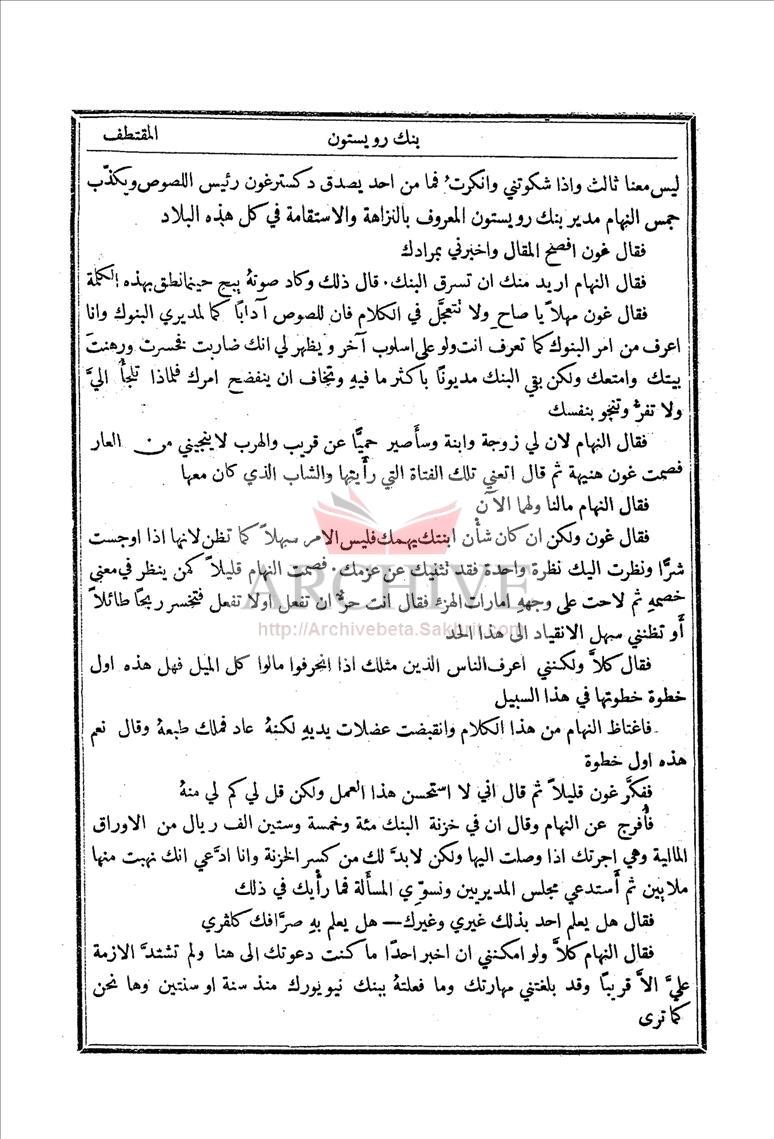 المقتطف
بنك رويستون
ليس معنا ثالث واذا شكوتني وانكرتُ فما من احد يصدق دكسترغون رئيس اللصوص ويكذّب
جمس النهام مدير بنك رويستون المعروف بالنزاهة والاستقامة في كل هذه البلاد
فقال غون افصح المقال واخبرني بمرادك
فقال النهام اريد منك ان تسرق البنك. قال ذلك وكاد صوتهُ يبح حينما نطق بهذه الكلمة
فقال غون مهلاً يا صاحِ ولا تتعجَّل في الكلام فان للصوص آدابًا كما لمديري البنوك وانا
اعرف من امر البنوك كما تعرف انت ولو على اسلوب آخر ويظهر لي انك ضاربت فخسرت ورهنتَ
بيتك وامتعك ولكن بقي البنك مديونًا باكثر ما فيهِ وتخاف ان ينفضح امرك فلماذا تلجأُ اليَّ
ولا تفرُّ وتنجو بنفسك
فقال النهام لان لي زوجة وابنة وسأَصير حميًّا عن قريب والهرب لا ينجيني من العار
فصمت غون هنيهة ثم قال اتعني تلك الفتاة التي رأَيتها والشاب الذي كان معها
فقال النهام مالنا ولها الآن
فقال غون ولكن ان كان شأْن ابنتك يهمك فليس الامر سهلاً كما تظن لانها اذا اوجست
شرًّا ونظرت اليك نظرة واحدة فقد تثنيك عن عزمك. فصمت النهام قليلاً كمن ينظر في معنى
خصمهِ ثم لاحت على وجههِ امارات الهزءِ فقال انت حرٌّ ان تفعل او لا تفعل فتخسر ربحًا طائلاً
أَو تظنني سهل الانقياد الى هذا الحد
فقال كلاَّ ولكنني اعرف الناس الذين مثلك اذا انجرفوا مالوا كل الميل فهل هذه اول
خطوة خطوتها في هذا السبيل
فاغتاظ النهام من هذا الكلام وانقبضت عضلات يديهِ لكنهُ عاد فملك طبعهُ وقال نعم
هذه اول خطوة
ففكَّر غون قليلاً ثم قال اني لا استحسن هذا العمل ولكن قل لي كم لي منهُ
فأُفرج عن النهام وقال ان في خزنة البنك مئة وخمسة وستين الف ريال من الاوراق
المالية وهي اجرتك اذا وصلت اليها ولكن لابدَّ لك من كسر الخزنة وانا ادَّعي انك نهبت منها
ملايين ثم أَستدعي مجلس المديرين ونسوّي المسأَلة فما رأْيك في ذلك
فقال هل يعلم احد بذلك غيري وغيرك— هل يعلم بهِ صرَّافك كلڤري
فقال النهام كلاَّ ولو امكنني ان اخبر احدًا ما كنت دعوتك الى هنا ولم تشتدَّ الازمة
عليَّ الاَّ قريبًا وقد بلغتني مهارتك وما فعلتهُ ببنك نيويورك منذ سنة او سنتين وها نحن
كما ترى
ARCHIVE
http://Archivebeta.Sakhrit.com